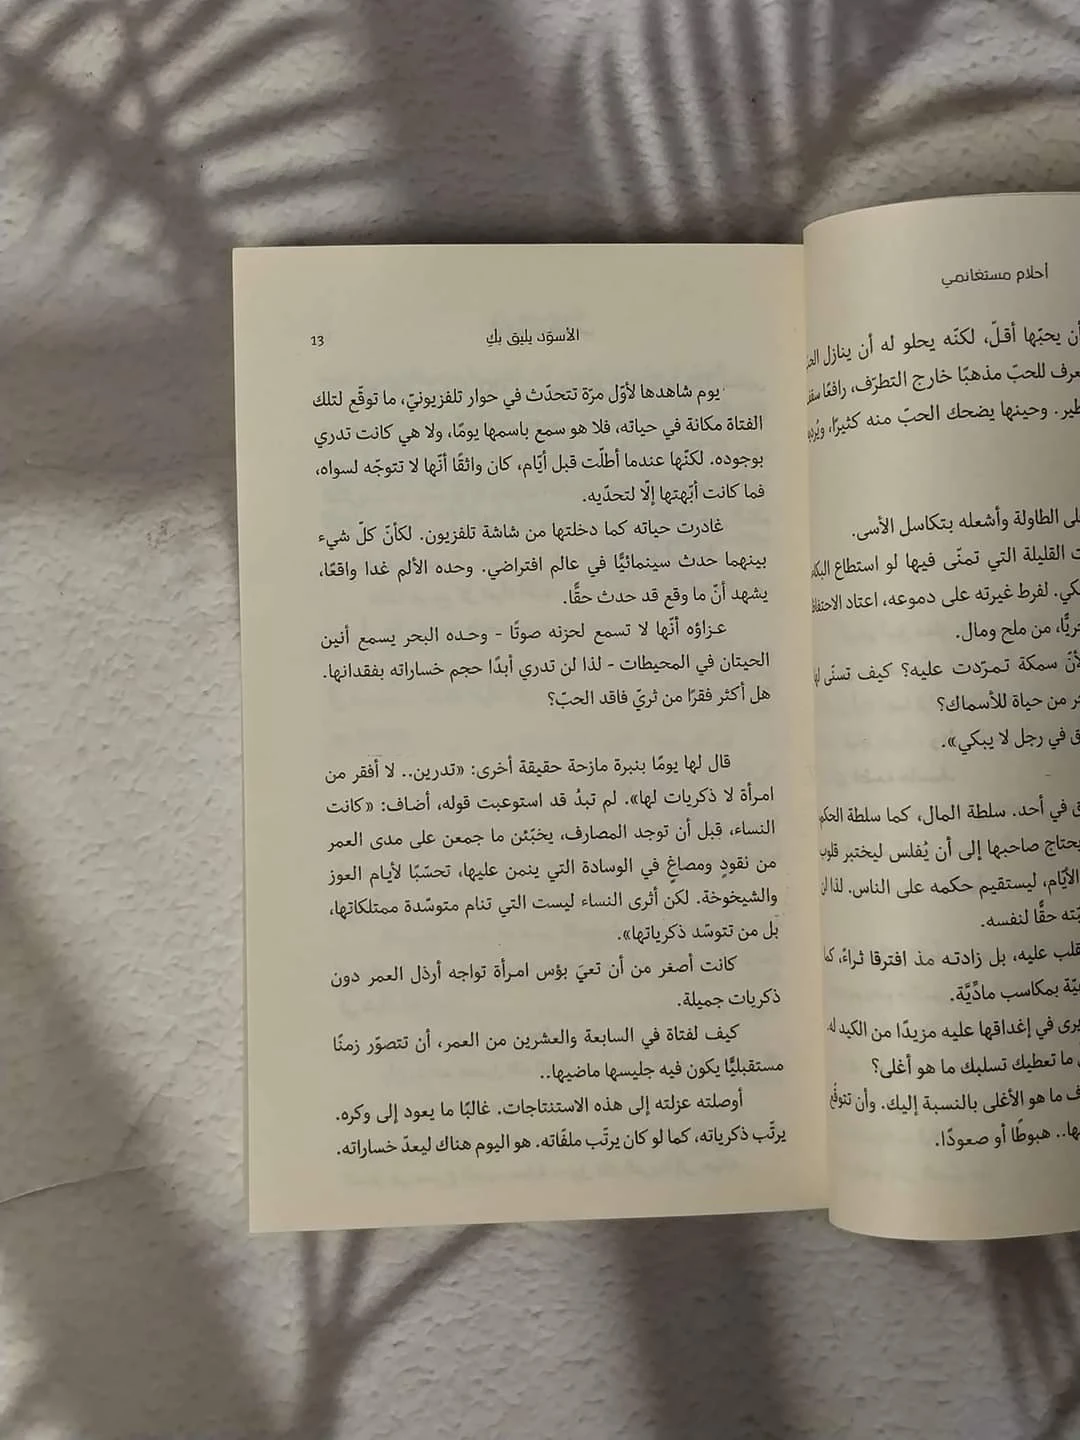 أحلام مستغانمي
أن يحبّها أقلّ، لكنّه يحلو له أن ينازل
للحبّ مذهبًا خارج التطرّف، رافعًا
وحينها يضحك الحبّ منه كثيرًا،
الطاولة وأشعله بتكاسل الأسى.
القليلة التي تمنّى فيها لو استطاع
لفرط غيرته على دموعه، اعتاد
من ملح ومال.
سمكة تمرّدت عليه؟ كيف تسنّى
من حياة للأسماك؟
في رجل لا يبكي».
في أحد. سلطة المال، كما سلطة
يحتاج صاحبها إلى أن يُفلس ليختبر قلوب
الأيّام، ليستقيم حكمه على الناس. لذا لن
حقًّا لنفسه.
عليه، بل زادته مذ افترقا ثراءً، كما
بمكاسب مادِّيَّة.
يرى في إغداقها عليه مزيدًا من الكيد له
ما تعطيك تسلبك ما هو أغلى؟
ما هو الأغلى بالنسبة إليك. وأن تتوقّع
هبوطًا أو صعودًا.
الأسوَد يليق بكِ
13
يوم شاهدها لأوّل مرّة تتحدّث في حوار تلفزيونيّ، ما توقّع لتلك
الفتاة مكانة في حياته، فلا هو سمع باسمها يومًا، ولا هي كانت تدري
بوجوده. لكنّها عندما أطلّت قبل أيّام، كان واثقًا أنّها لا تتوجّه لسواه،
فما كانت أبّهتها إلّا لتحدّيه.
غادرت حياته كما دخلتها من شاشة تلفزيون. لكأنّ كلّ شيء
بينهما حدث سينمائيًّا في عالم افتراضي. وحده الألم غدا واقعًا،
يشهد أنّ ما وقع قد حدث حقًّا.
عزاؤه أنّها لا تسمع لحزنه صوتًا - وحده البحر يسمع أنين
الحيتان في المحيطات - لذا لن تدري أبدًا حجم خساراته بفقدانها.
هل أكثر فقرًا من ثريّ فاقد الحبّ؟
قال لها يومًا بنبرة مازحة حقيقة أخرى: «تدرين.. لا أفقر من
امرأة لا ذكريات لها». لم تبدُ قد استوعبت قوله، أضاف: «كانت
النساء، قبل أن توجد المصارف، يخبّئن ما جمعن على مدى العمر
من نقودٍ ومصاغٍ في الوسادة التي ينمن عليها، تحسّبًا لأيام العوز
والشيخوخة. لكن أثرى النساء ليست التي تنام متوسّدة ممتلكاتها،
بل من تتوسّد ذكرياتها».
كانت أصغر من أن تعيَ بؤس امرأة تواجه أرذل العمر دون
ذكريات جميلة.
كيف لفتاة في السابعة والعشرين من العمر، أن تتصوّر زمنًا
مستقبليًّا يكون فيه جليسها ماضيها..
أوصلته عزلته إلى هذه الاستنتاجات. غالبًا ما يعود إلى وكره.
يرتّب ذكرياته، كما لو كان يرتّب ملفّاته. هو اليوم هناك ليعدّ خساراته.